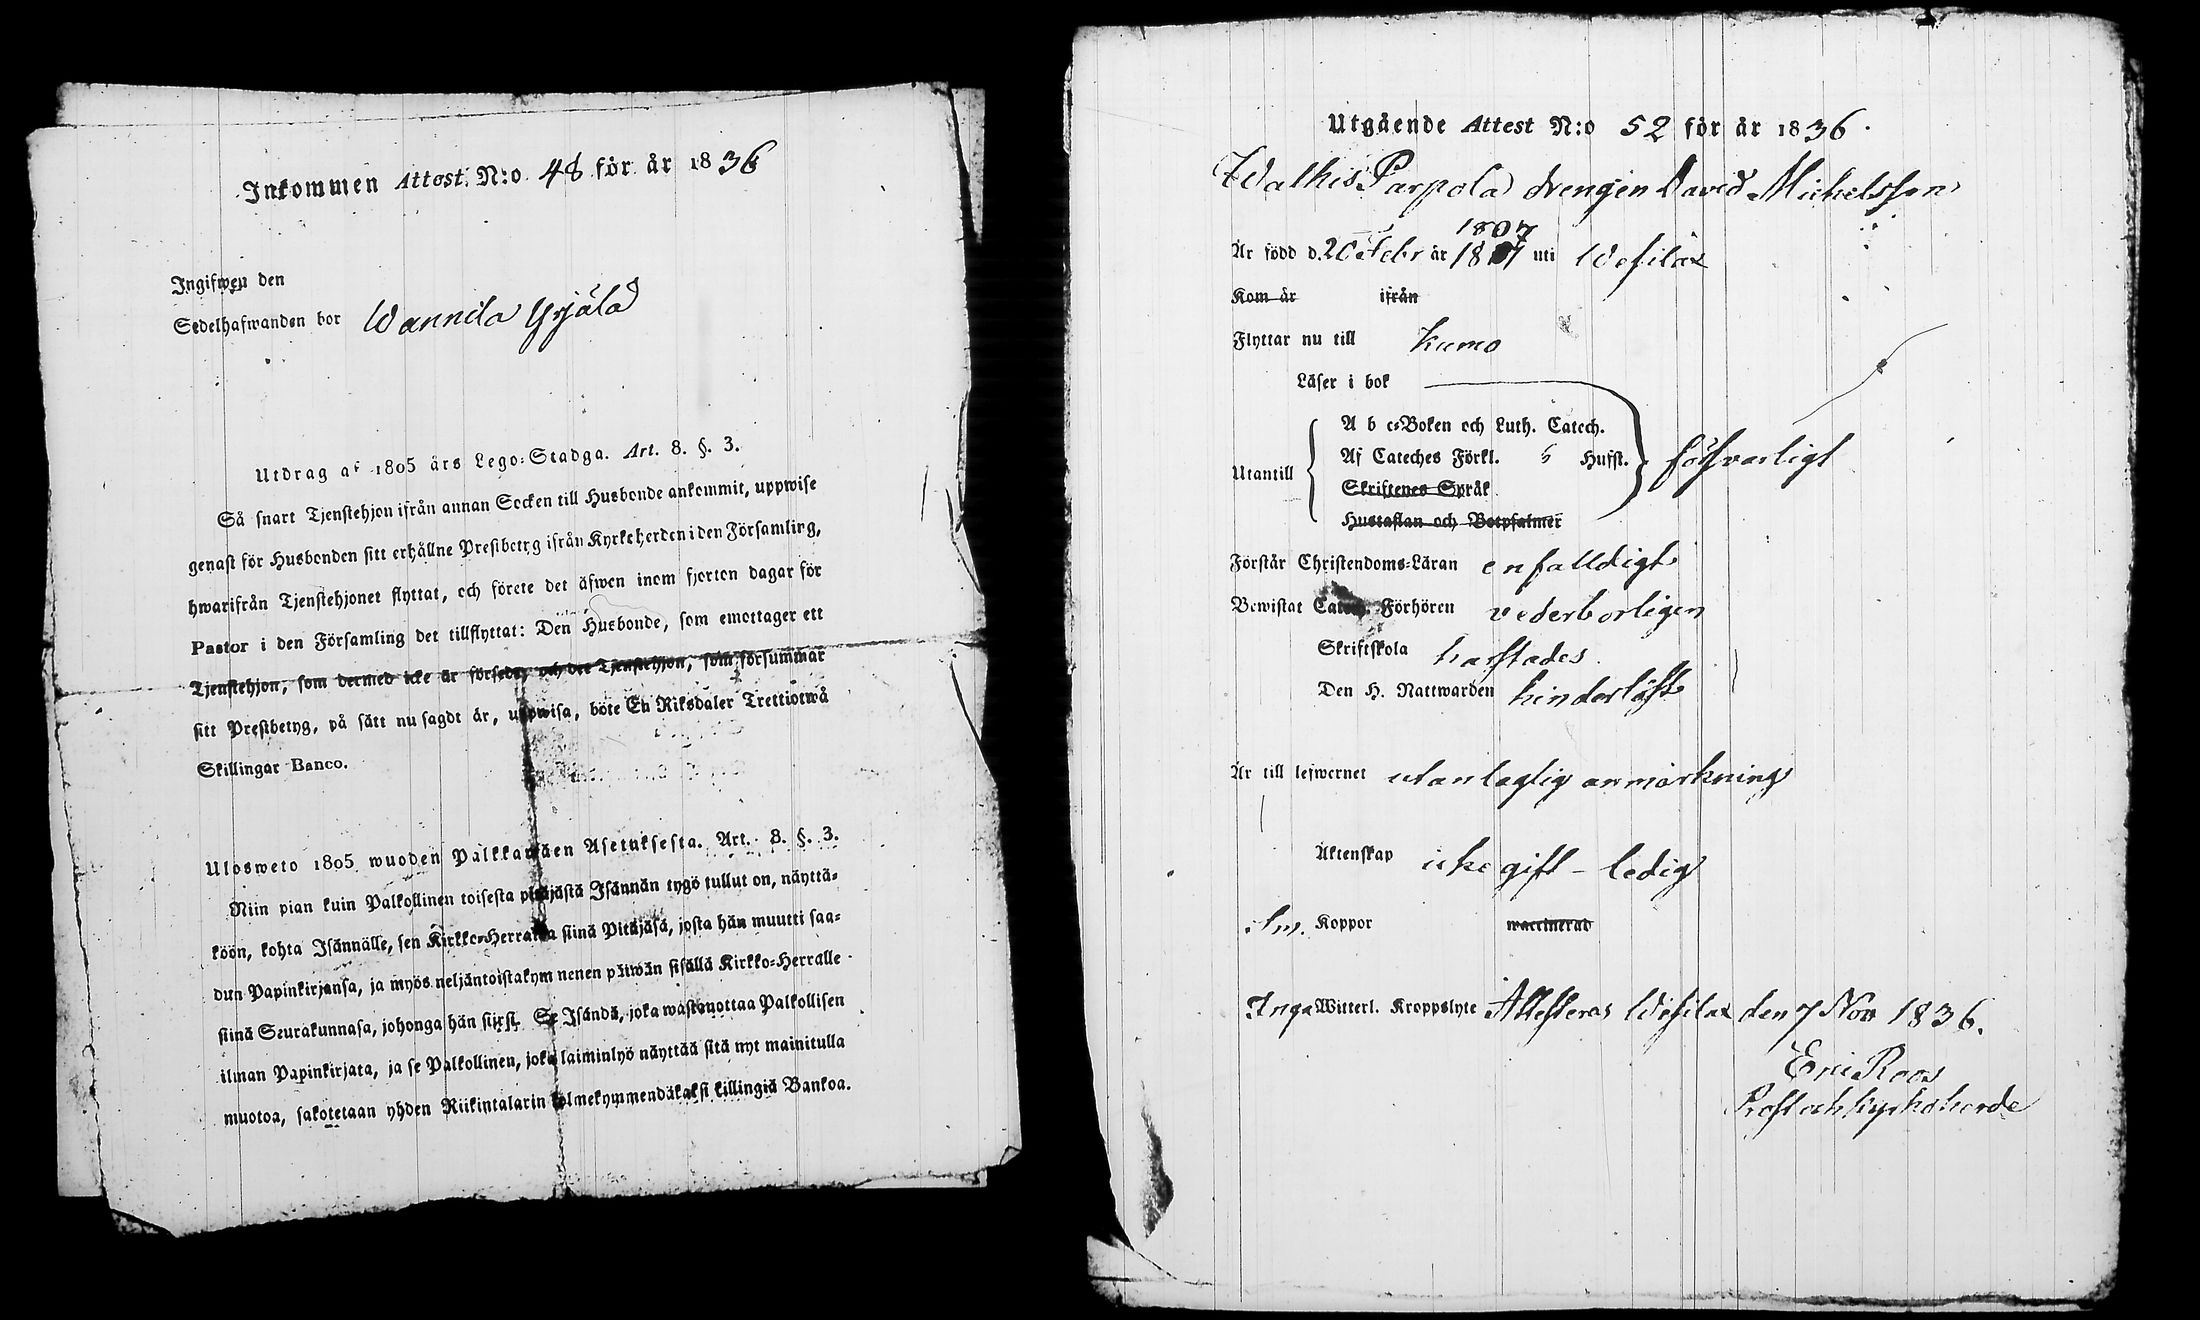 Inkommen Attest N:o 48 för år 1836
Ingifwen den
Sedelhafwanden bor Wannila Yrjälä
Utdrag af 1805 års Lego-Stadga. Art. 8. §. 3.
Så snart Tjenstehjon ifrån annan Socken till Husbonde ankommit, uppwise
genast för Husbonden sitt erhållne Prestbetyg ifrån Kyrkeherden i den Församling,
hwarifrån Tjenstehjonet flyttat, och förete det äfwen inom fjorton dagar för
Pastor i den Församling det tillflyttat: Den Husbonde, som emottager ett
Tjenstehjon, som dermed icke är försedt, och det Tjenstehjon, som försummar
sitt Prestbetyg, på sätt nu sagdt är, uppwisa, böte En Riksdaler Trettiotwå
Skillingar Banco.
Ulosweto 1805 wuoden Palkkawäen Asetuksesta. Art. 8. §. 3.
Niin pian kuin Palkollinen toisesta pitäjästä Isännän tygö tullut on, näyttä-
köön, kohta Isännälle, sen Kirkko-Herralda siinä Pitäjäsä, josta hän muutti saa-
dun Papinkirjansa, ja myös neljäntoistakymnenen päiwän sisällä Kirkko-Herralle
siinä Seurakunnasa, johonga hän siirsi. Se Isändä, joka wastanottaa Palkollisen
ilman Papinkirjata, ja se Palkollinen, joka laiminlyö näyttää sitä nyt mainitulla
muotoa, sakotetaan yhden Riikintalarin kolmekymmendäkaksi killingiä Bankoa.
Utgående Attest N:o 52 för år 1836.
Walkis Parpola drengen David Michelsson
1807
Är född d. 20 Febr år 18 7 uti Wesilax
Kom år ifrån
Flyttar nu till Kumo
Läser i bok
Utantill
A b c-Boken och Luth. Catech.
Af Cateches Förkl. 5 Hufst.
Skriftenes Språk
Hustaflan och Botpsalmer
försvarligt
Förstår Christendoms-Läran enfalldigt
Bewistat Catech. Förhören vederborligen
Skriftskola harstädes
Den H. Nattwarden hinderlöst
Är till lefwernet utan laglig anmärkning
Äktenskap icke gift - ledig
Koppor waccinerad
Inga Witterl. Kroppslyte Attesteras Wesilax den 7 Nov 1836.
Eric Roos
Prost och Kyrkoherde